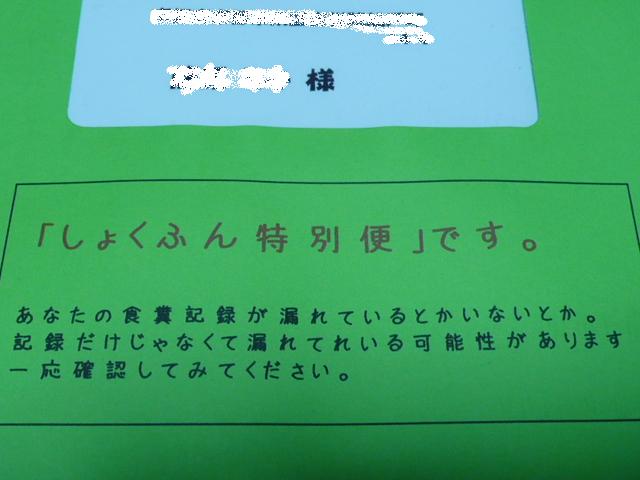 様
「しょくふん特別便」です。
あなたの食糞記録が漏れているとかいないとか。
記録だけじゃなくて漏れてれいる可能性があります
一応確認してみてください。